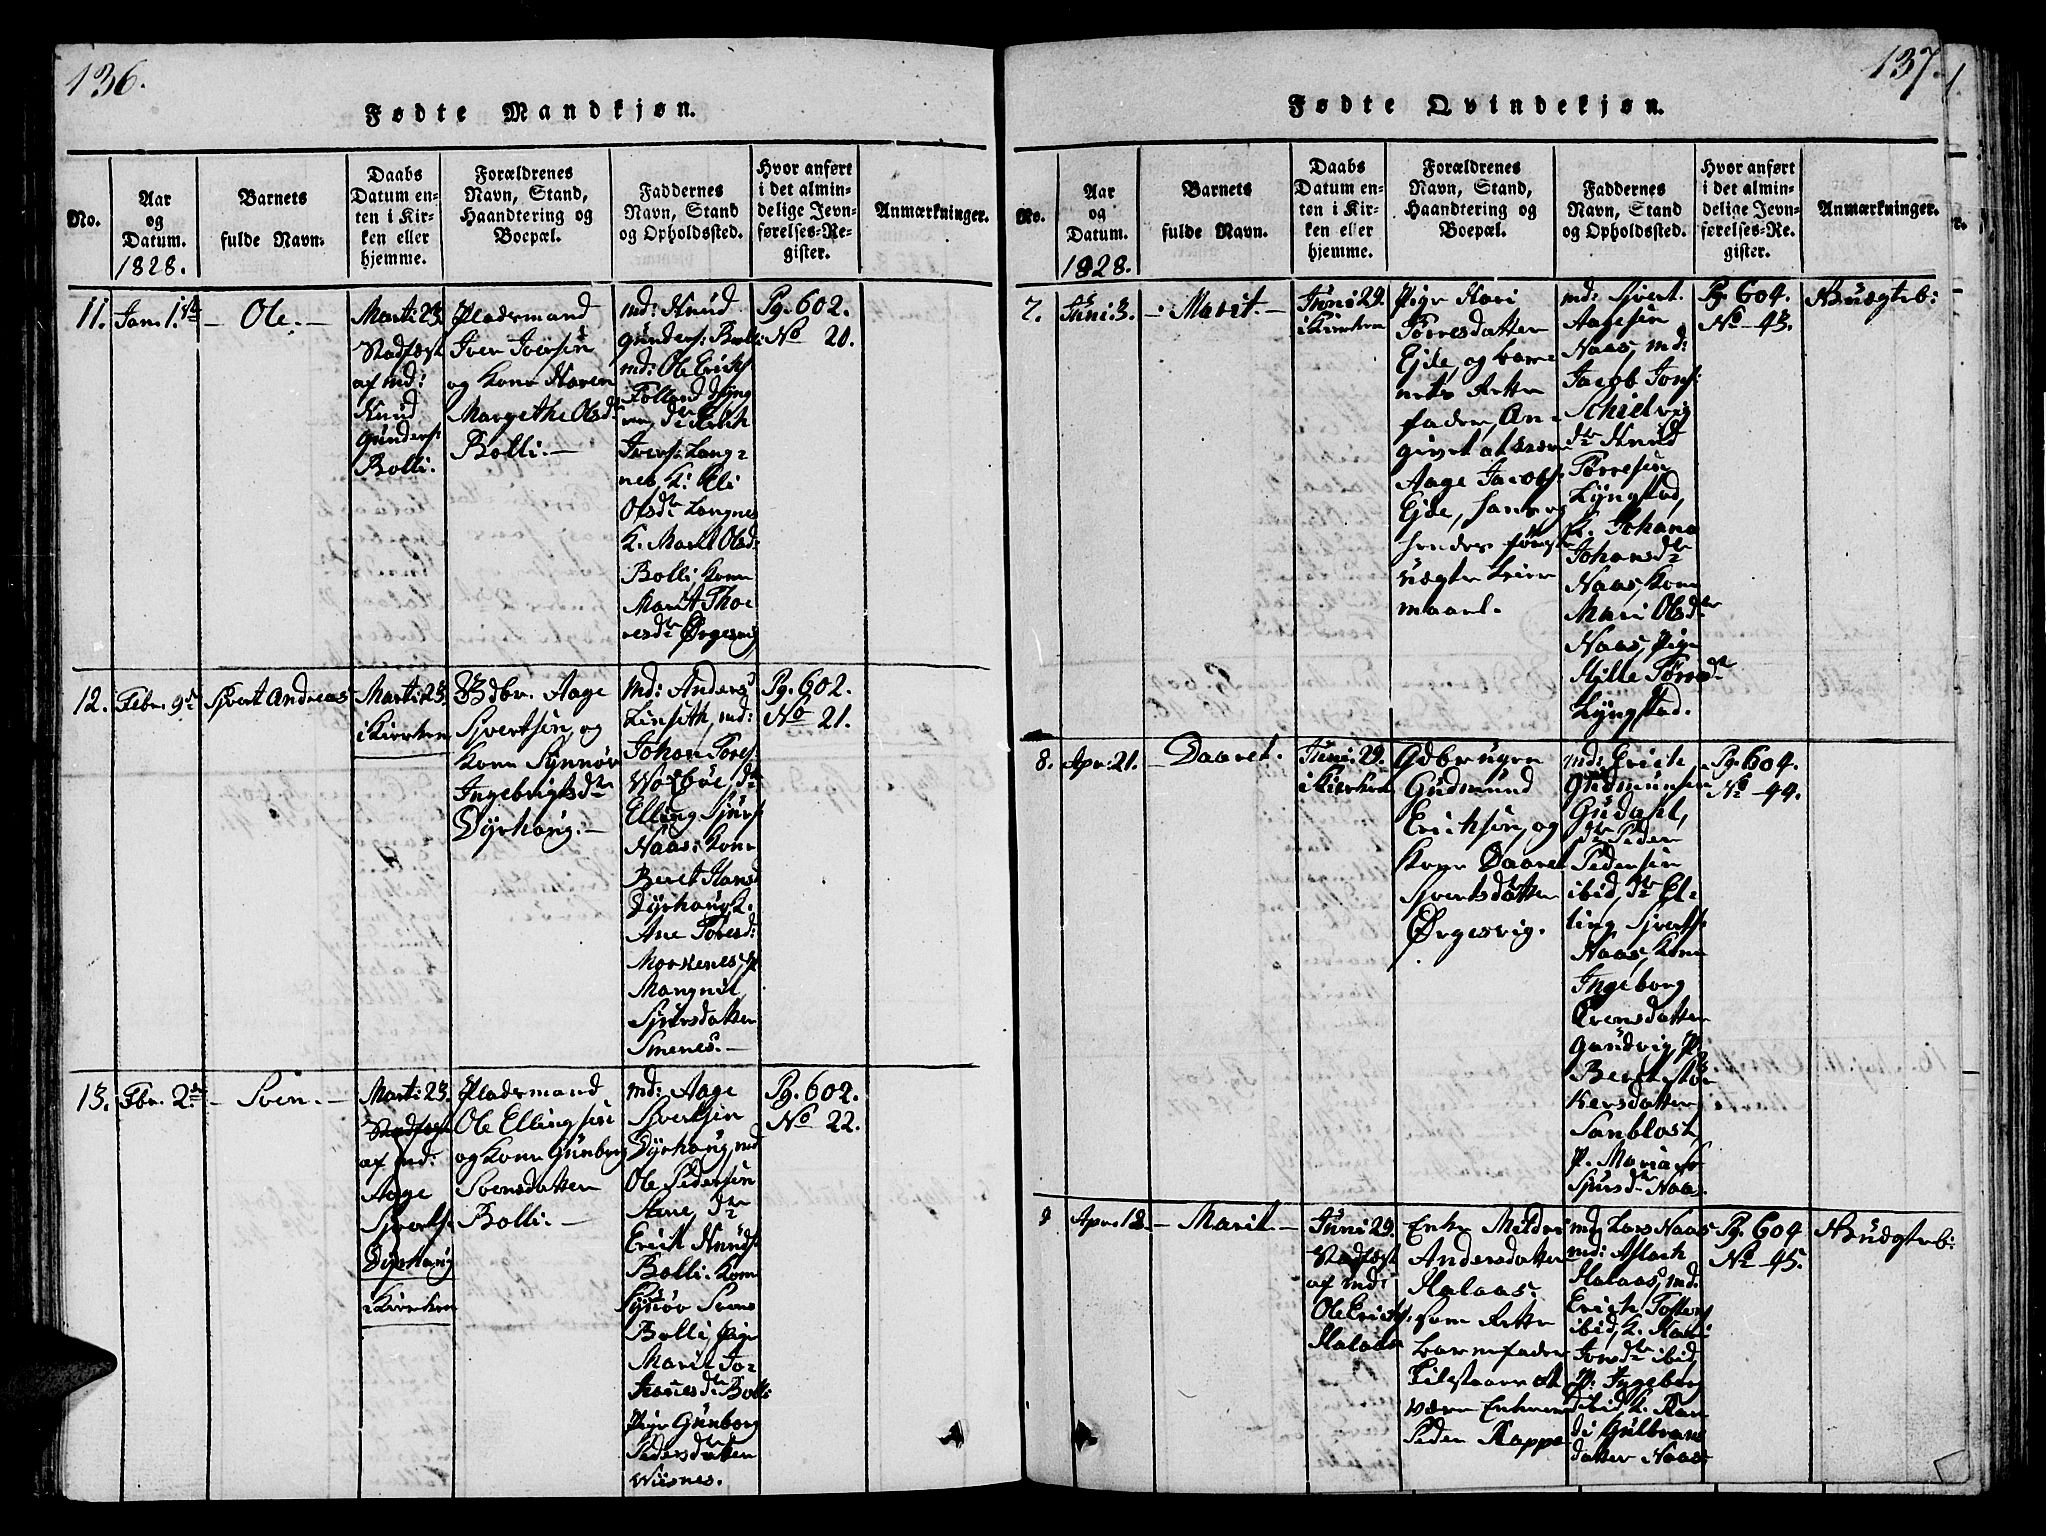 136.
Fødte Mandkjøn.
No.
Aar
og
Datum.
1828.
Barnets
fulde Navn.
Daabs
Datum en-
ten i Kir-
ken eller
hjemme.
Forældrenes
Navn, Stand,
Haandtering og
Boepæl.
Faddernes
Navn, Stand
og Opholdssted.
Hvor anført
i det almin-
delige Jevn-
førelses-Re-
gister.
Anmærkninger.
11.
Jan. 1ste
Ole.
Marti 23.
Stadfæst
af md:
Knud
Gunders:
Bolli.
Pladsmand
Iver Iversen
og Kone Karen
Margethe Olsdr
Bolli.
md: Knud
Gunders: Bolli
md: Ole Erichs
Folland
Ivers: Lang-
nes, K:
Olsdr Langnes
K. Marit Olsd:
Bolli, Kone
Marit Tho-
resdr Ørgesvig
Pg. 602.
No 20.
12.
Febr. 9de
Sivert Andreas
Marti 23.
i Kirken
Gdbr. Aage
Sivertsen, og
Kone Synnøv
Ingebrigtsdr
Dyrhaug.
md: Anders
md:
Johan Tores
dr
Elling Sjurs
Naas: Kone
Beret Hansd
Dyrhaug K.
Ane Toresd:
Morkenes, P
Mangnil
Sjursdatter
Smenes.
Pg. 602.
No 21.
13.
Fbr. 2den
Sven.
Marti 23.
Stadfæst
af md:
Aage
Siverts:
Dyrhaug
i Kirken
Pladsmand
Ole Ellingsen
og Kone Gunborg
Svensdatter
Bolli.
md: Aage
Sivertsen
Dyrhaug, md
Ole Pedersen
dr
Erich Knuds:
Bolli. Kone
Synøv Svens
Bolli, Pige
Marit Jo-
Bolli
Pige Gunborg
Pedersdatter
Wiisnes.
Pg. 602.
No 22.
137.
Fødte Qvindekjøn.
No.
Aar
og
Datum.
1828.
Barnets
fulde Navn.
Daabs
Datum en-
ten i Kir-
ken eller
hjemme.
Forældrenes
Navn, Stand,
Haandtering og
Boepæl.
Faddernes
Navn, Stand
og Opholdssted.
Hvor anført
i det almin-
delige Jevn-
førelses-Re-
gister.
Anmærkninger.
7.
Juni 3.
Marit.
Juni 29.
i Kirken
Pige Kari
Torresdatter
Ejde, og bar-
nets Rette
fader, An-
givet at være
Aage Jacobs:
Ejde, hans og
hendes første
uægte Leier-
maal.
md: Sivert
Aagesen
Naas, md:
Jacob Jons:
Schielvig
dr Knud
Torresen
Lyngstad,
K. Johana
Johansdr
Naas, Kone
Mari Olsdr
Naas, Pige
Hille Torresdr
Lyngstad.
Pg. 604.
No 43.
Uægteb:
8.
Apr. 21.
Daaret.
Juni 29.
i Kirken
Gdbruger
Gudmund
Erichsen, og
Kone Daaret
Sivertsdatter
Ørgesvig.
md: Erich
Gudmunsen
Gudahl,
dr Peder
Pedersen
ibid, dr El-
ling Siverts:
Naas, Kone
Ingeborg
Evensdatter
Gundvig, P.
Beret Stør-
kersdatter
Sanblost,
P. Maria
Sjursdr Naas.
Pg. 604.
No 44.
9
Apr. 12.
Marit
Juni 29.
Stadfæst
af md:
Ole Erichs:
Halaas
Enke Mildri
Andersdatter
Halaas:
som Rette
barnefader
Tilstaaes at
være Enkemd
Peder Rappe
md: Lars Naas
md: Aslach
Halaas, md:
Erich Tostens
ibid, K. Kari
Jonsdr ibid,
P. Ingeborg
ibid, K. Ran-
di Gulbrans
datter Naas
Pg. 604
No 45.
Uægteb: